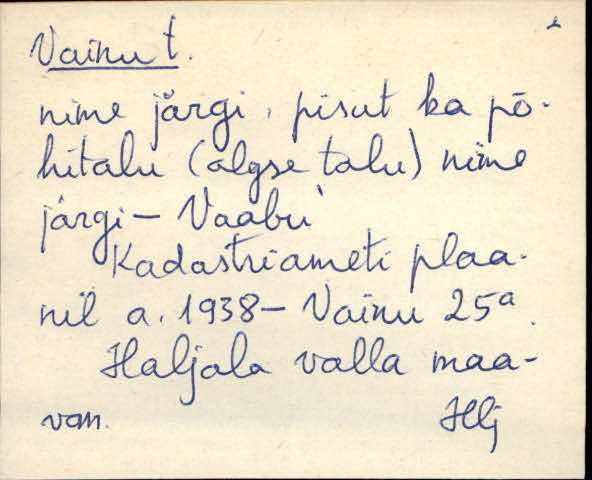 Vainu t.
nime järgi, pisut ka põ-
hitalu (algse talu) nime
järgi – Vaabu'
Kadastriameti plaa-
nil a. 1938 – Vainu 25a.
Haljala valla maa-
van. Hlj